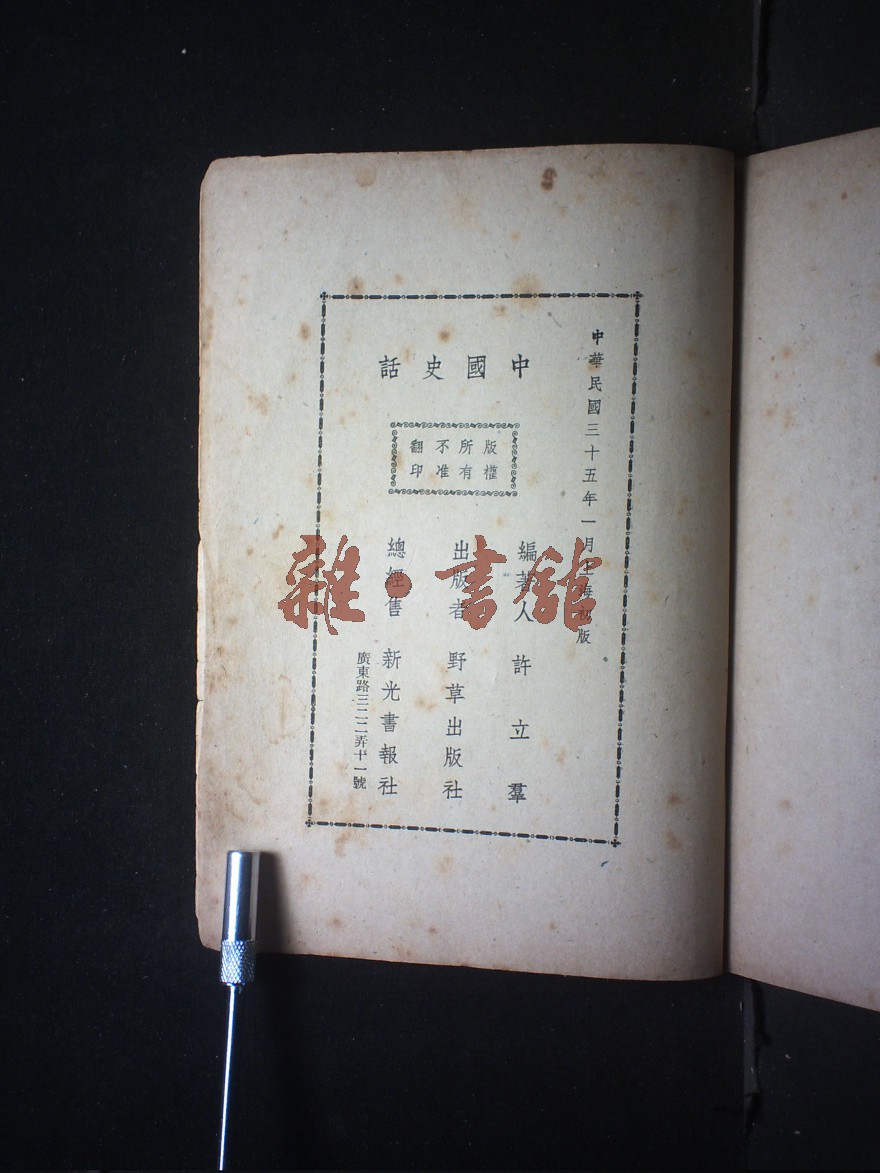 中華民國三十五年一月上海初版
中國史話
版權
所有
不准
翻印
編著人 許立羣
出版者 野草出版社
總經售 新光書報社
廣東路三二二弄十一號
雜·書館